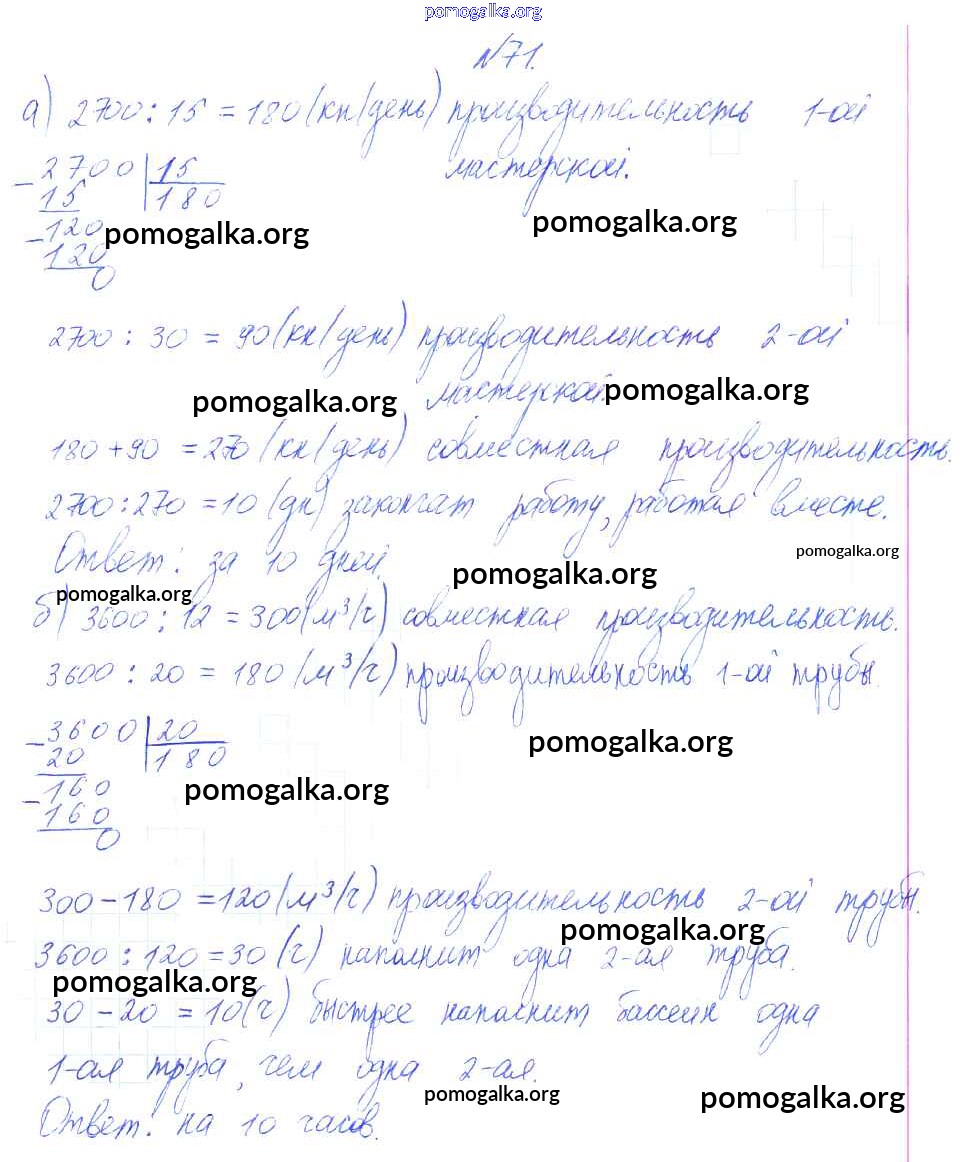 pomogalka.org
№71.
а) 2700 : 15 = 180 (кн/день) производительность 1-ой
мастерской.
- 2700 | 15
15 | 180
pomogalka.org
- 120 pomogalka.org
120
0
2700 : 30 = 90 (кн/день) производительность 2-ой
pomogalka.org мастерской. pomogalka.org
180 + 90 = 270 (кн/день) совместная производительность.
2700 : 270 = 10 (дн) закончат работу, работая вместе.
pomogalka.org
Ответ: за 10 дней. pomogalka.org
pomogalka.org
б) 3600 : 12 = 300 (м³/ч) совместная производительность.
3600 : 20 = 180 (м³/ч) производительность 1-ой трубы.
- 3600 | 20
20 | 180
pomogalka.org
- 160 pomogalka.org
160
0
300 - 180 = 120 (м³/ч) производительность 2-ой трубы.
pomogalka.org
3600 : 120 = 30 (ч) наполнит одна 2-ая труба.
pomogalka.org
30 - 20 = 10 (ч) быстрее наполнит бассейн одна
1-ая труба, чем одна 2-ая.
pomogalka.org pomogalka.org
Ответ: на 10 часов.